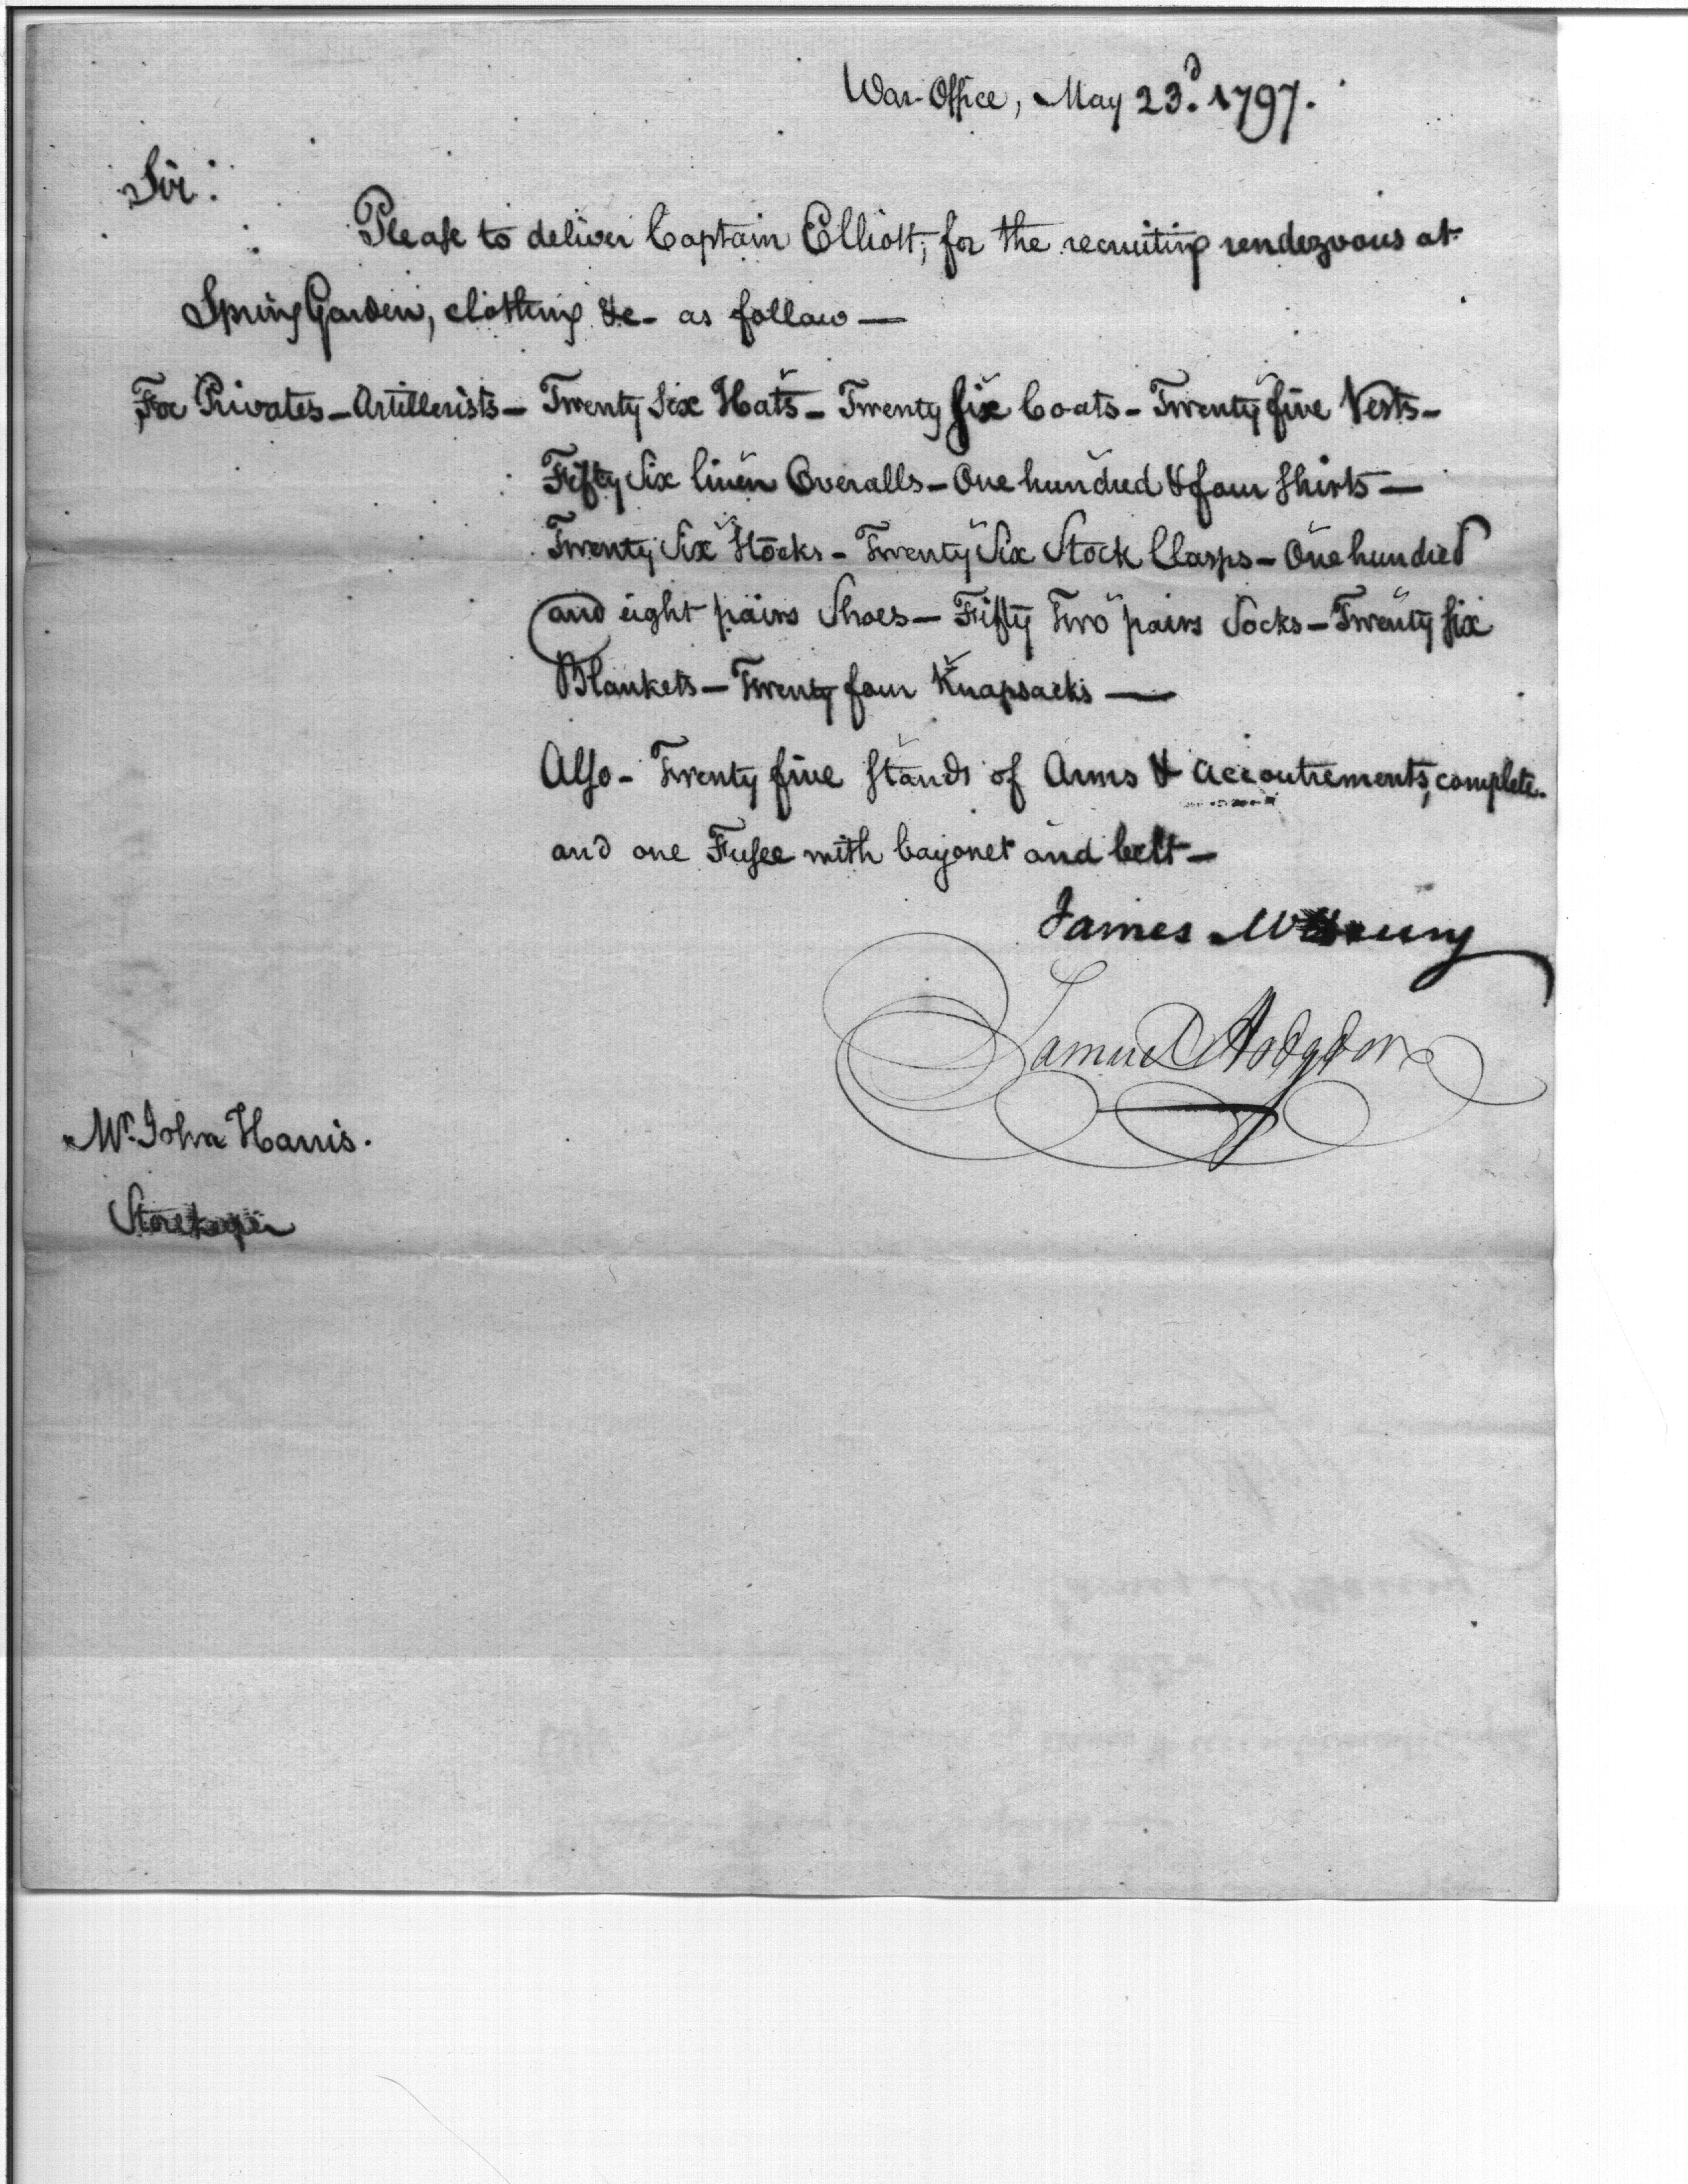 War-Office, May 23d. 1797.
Sir:
Please to deliver Captain Elliott, for the recruiting rendezvous at
Spring Garden, clothing &c- as follow—
For Privates-Artillerists- Twenty Six Hats- Twenty six Coats- Twenty five Vests-
Fifty Six linen Overalls- One hundred & four shirts—
Twenty Six Stocks- Twenty Six Stock Clasps- One hundred
and eight pairs Shoes- Fifty Two pairs Socks- Twenty six
Blankets- Twenty four Knapsacks—
Also- Twenty five stands of Arms & accoutrements, complete.
and one Fusee with bayonet and belt-
James McHenry
Samuel Hodgdon
Mr. John Harris.
Storekeeper